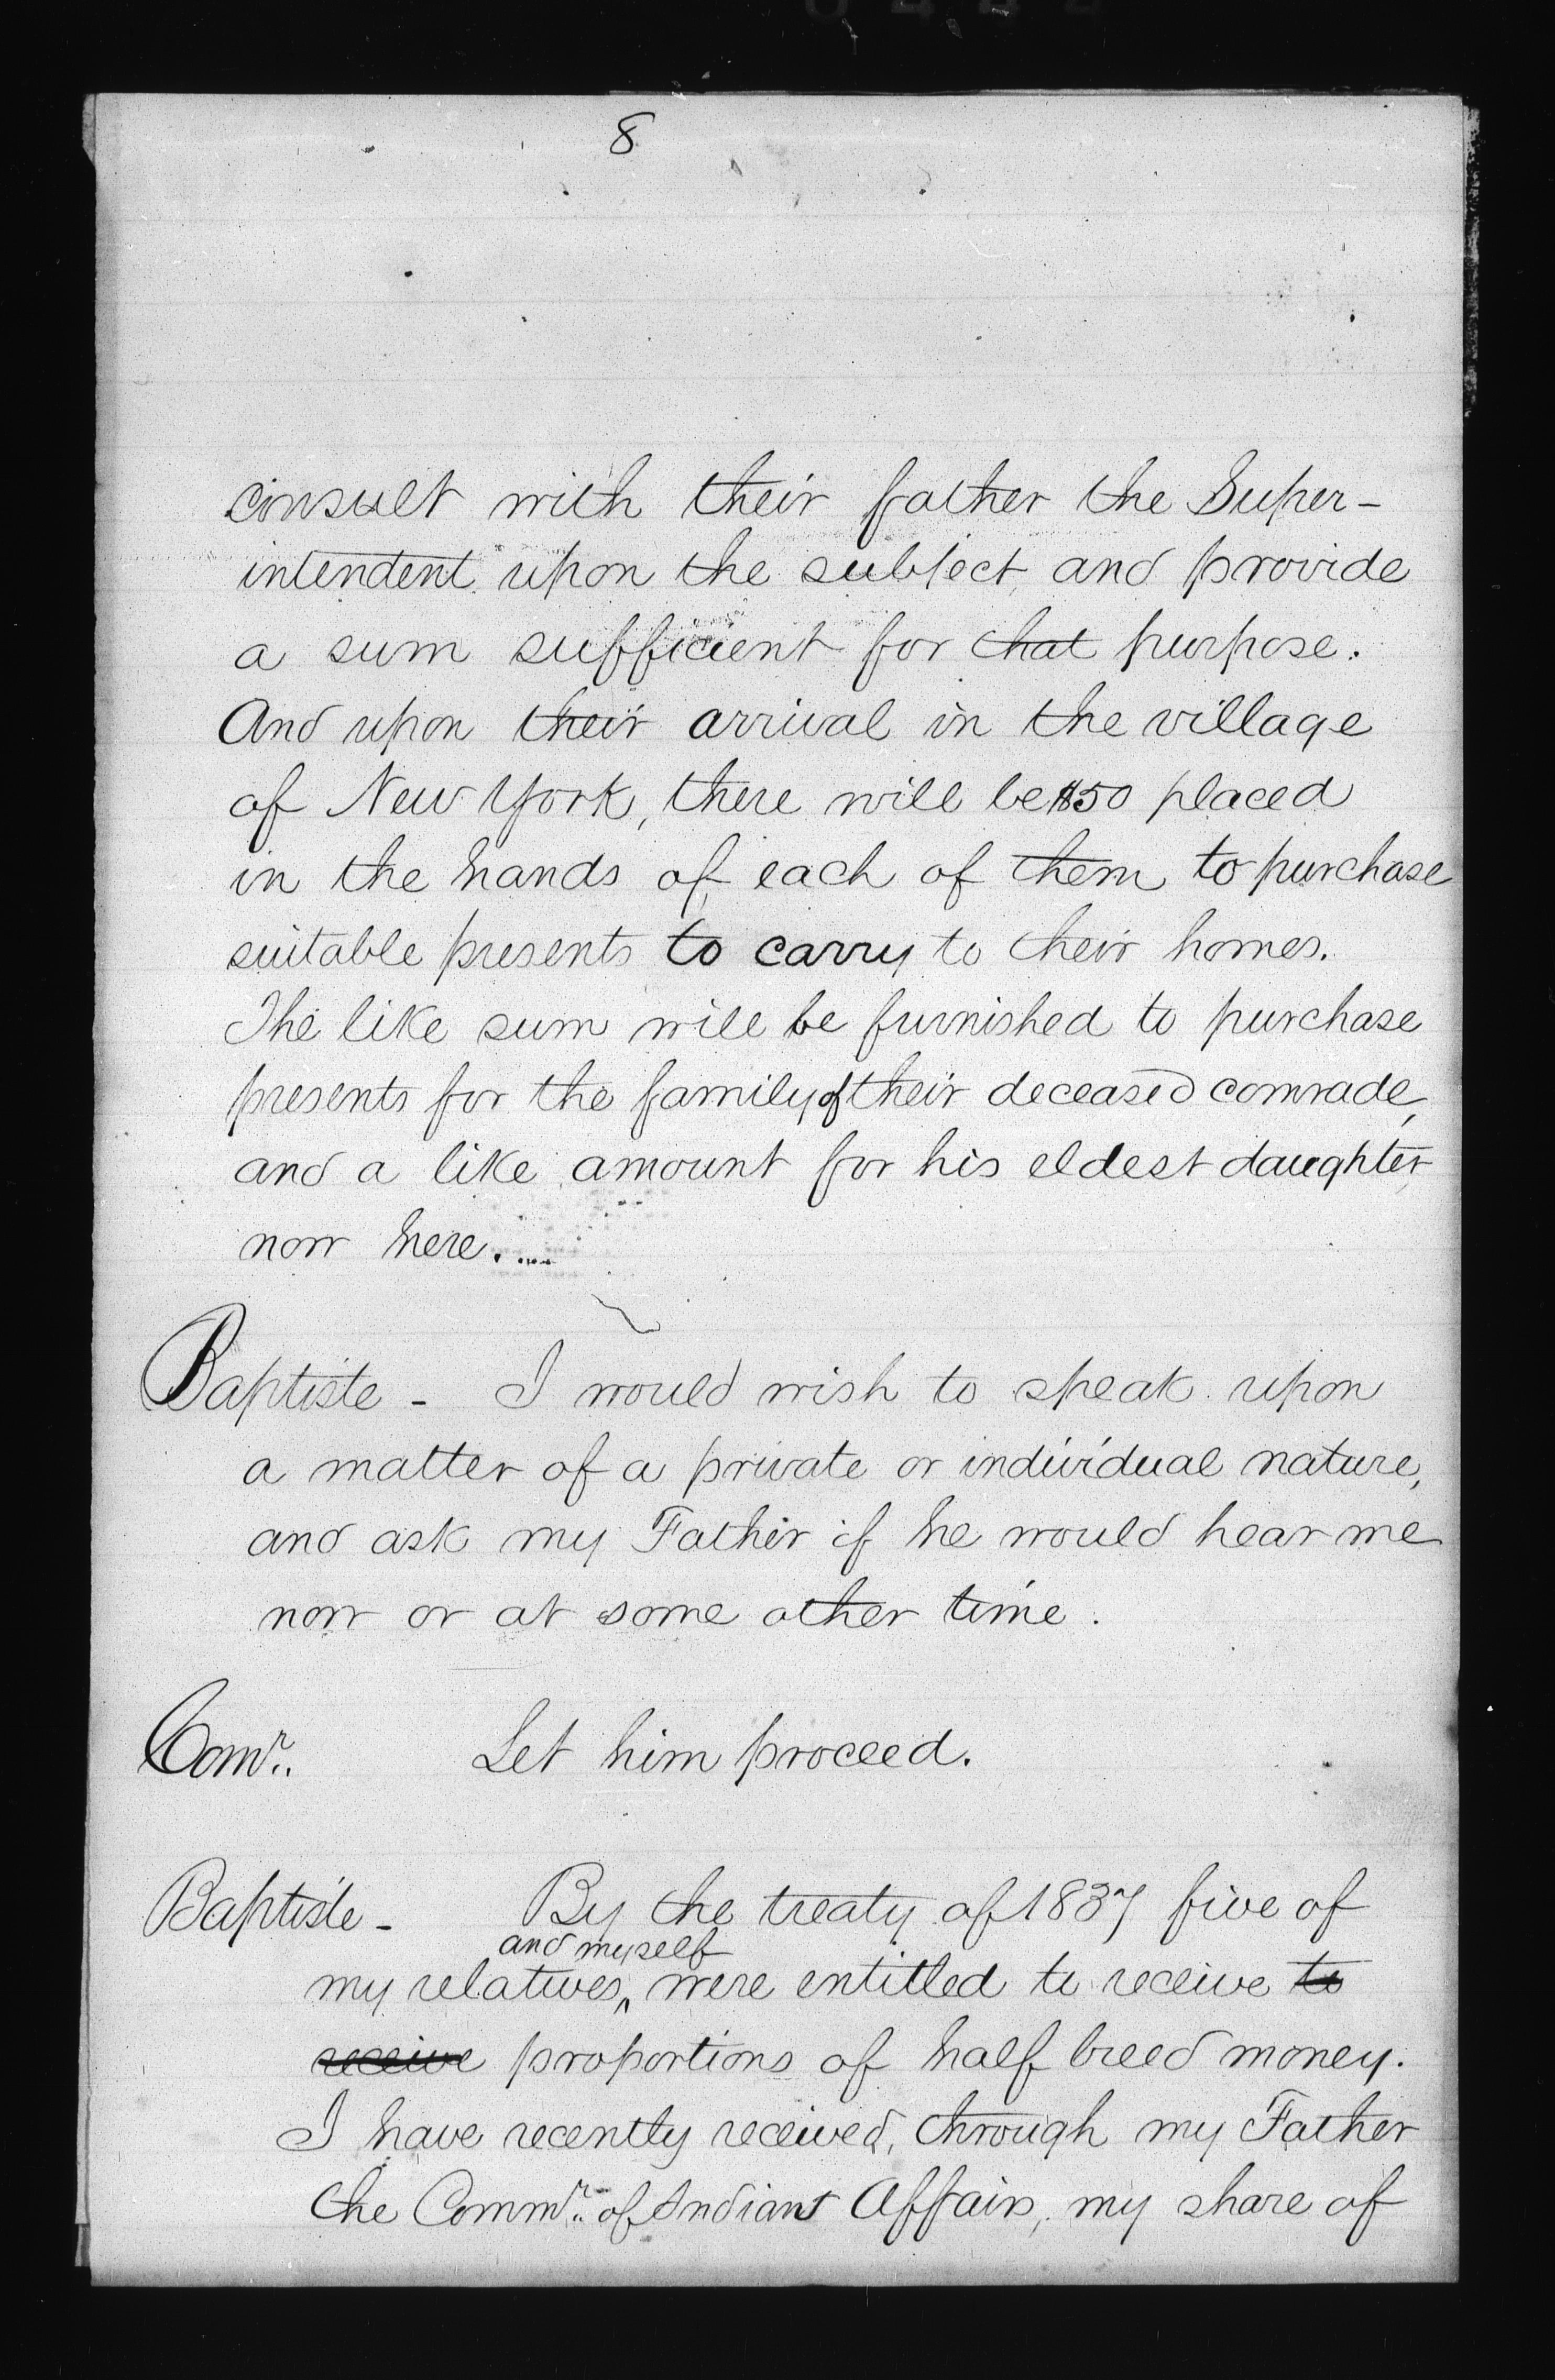 8
consult with their father the Super-
intendent upon the subject, and provide
a sum sufficient for that purpose.
And upon their arrival in the village
of New York, there will be $50 placed
in the hands of each of them to purchase
suitable presents to carry to their homes.
The like sum will be furnished to purchase
presents for the family of their deceased comrade,
and a like amount for his eldest daughter
now here.
Baptiste - I would wish to speak upon
a matter of a private or individual nature,
and ask my Father if he would hear me
now or at some other time.
Comr. Let him proceed.
Baptiste - By the treaty of 1837 five of
and myself
my relatives, were entitled to receive to
receive proportions of half breed money.
I have recently received, through my Father
the Commr. of Indian Affairs, my share of